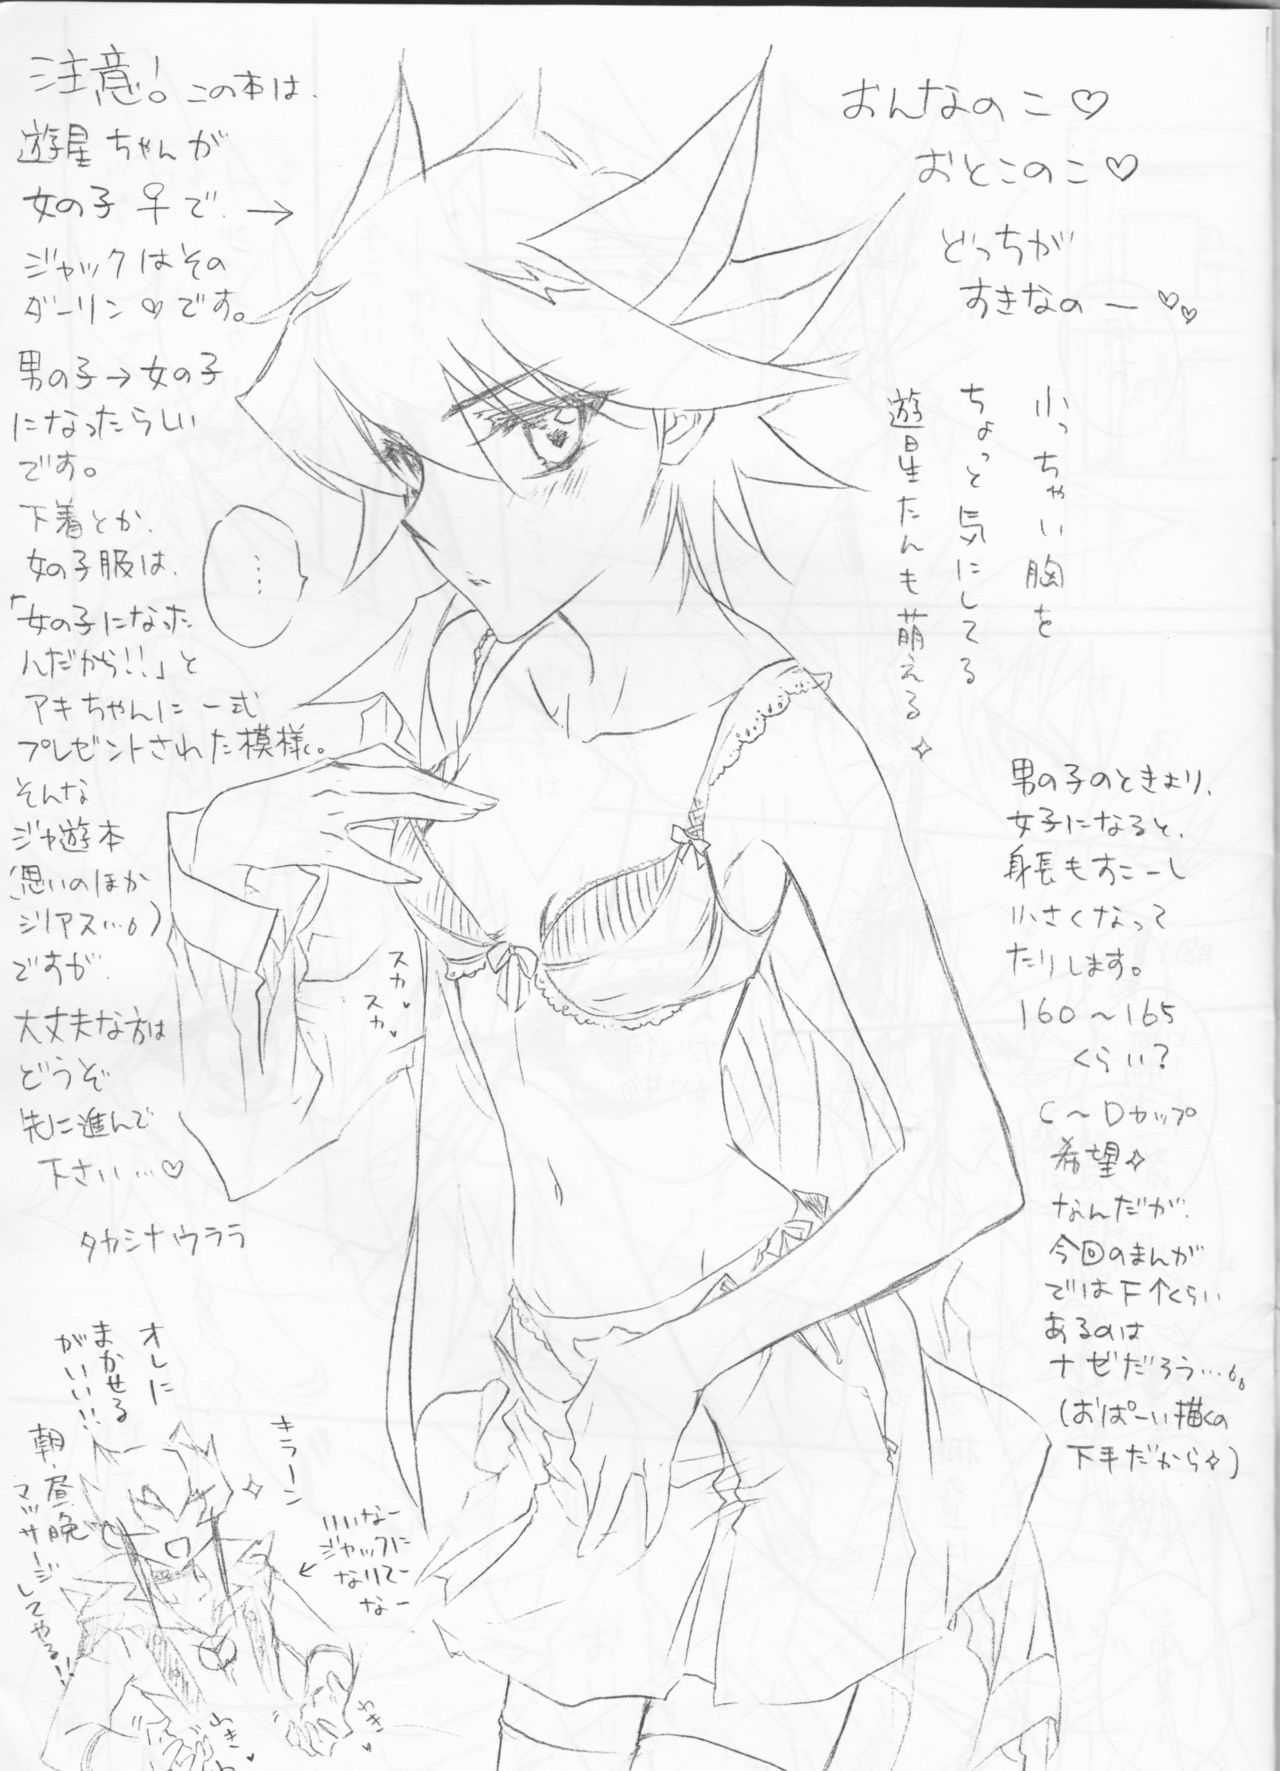 注意！この本は、
遊星ちゃんが
女の子♀で、→
ジャックはその
ダーリン♡です。
男の子→女の子
になったらしい
です。
下着とか、
女の子服は、
「女の子になった
んだから!!」と
アキちゃんに一式
プレゼントされた模様。
そんな
ジャ遊本
(思いのほか
シリアス…)
ですが、
大丈夫な方は
どうぞ
先に進んで
下さい…♡
タカシナウララ
……
おんなのこ♡
おとこのこ♡
どっちが
すきなのー♡♡
小っちゃい胸を
ちょっと気にしてる
遊星たんも萌える✧
男の子のときより、
女子になると、
身長もすこーし
小さくなって
たりします。
160〜165
くらい？
C〜Dカップ
希望✧
なんだが、
今回のまんが
では F↑くらい
あるのは
ナゼだろう…。
(おぱーい描くの
下手だから✧)
スカ♥
スカ♥
オレに
まかせる
がいい!!
朝・昼・晩と
マッサージ
してやる!!
キラーン
いいなー
ジャックに
なりてー
なー
わき♥
わき♥